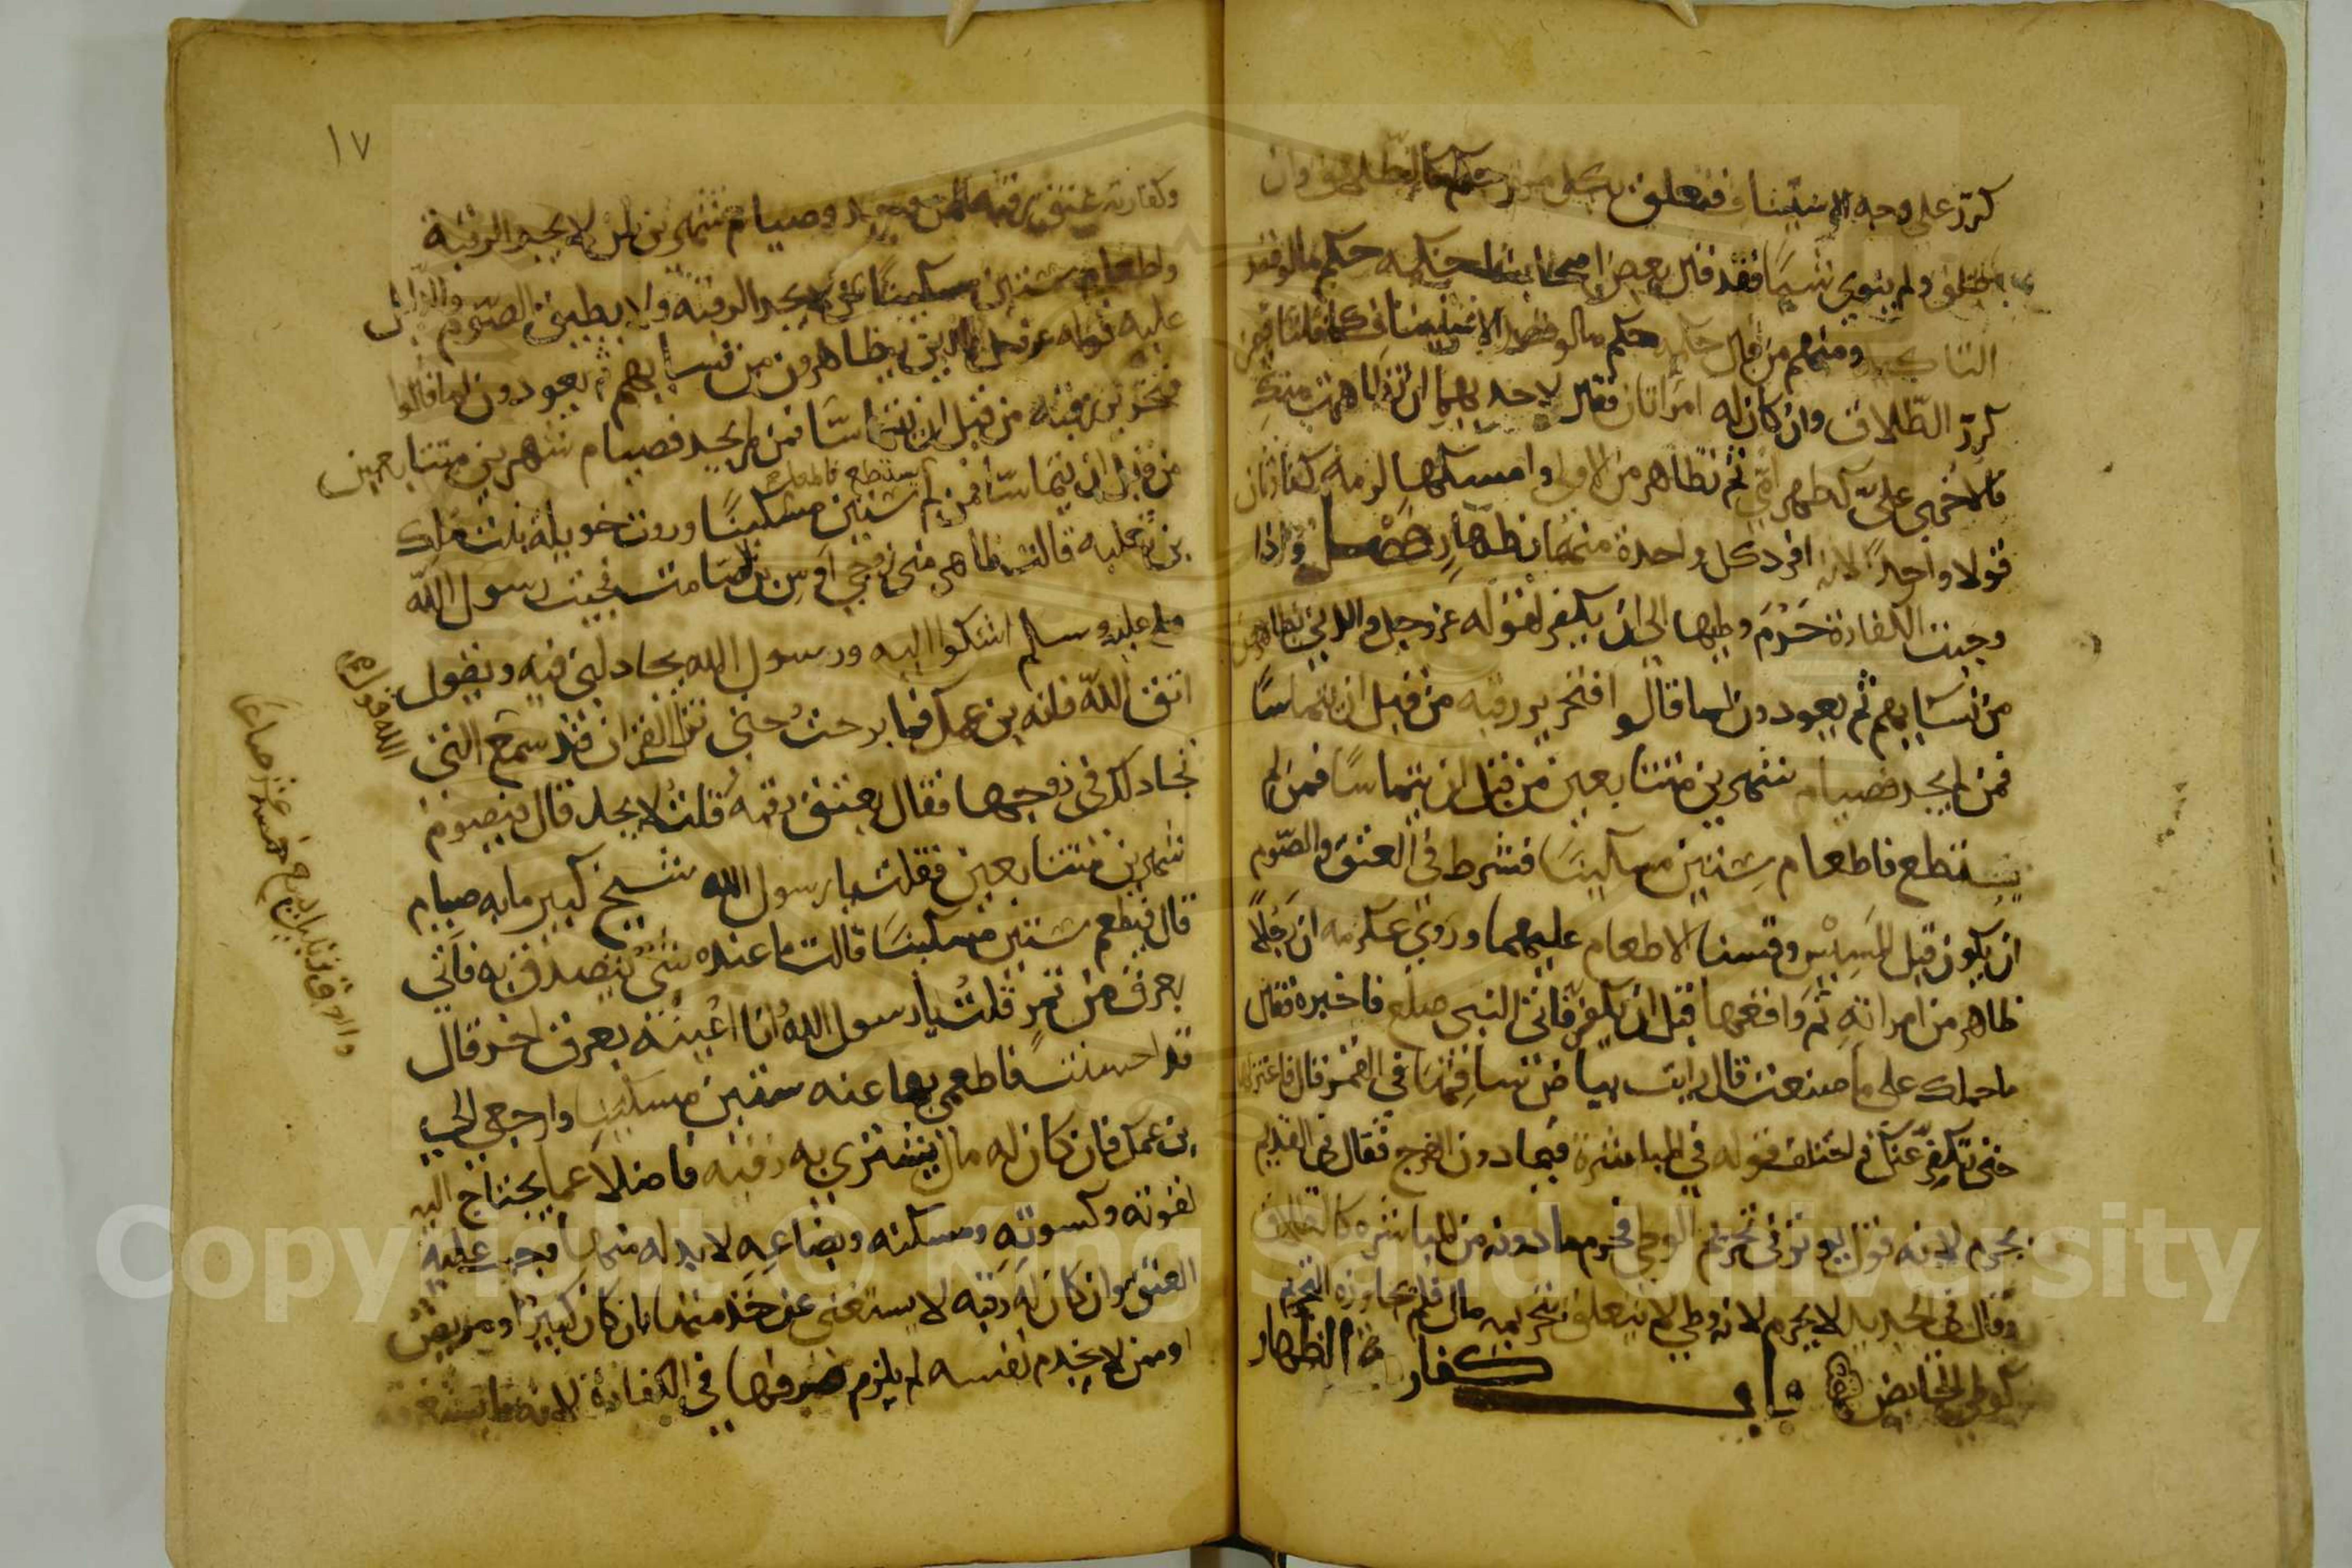 كرر على وجه الاستيناف فتعلق بكل مرة حكم كالطلاق وان
اطلق ولم ينوي شيا فقد قال بعض اصحابنا حكمه حكم مالو قصد
التاكيد ومنهم من قال حكمه حكم مالو قصد الاستيناف كما قلنا فيمن
كرر الطلاق وان كان له امراتان فقال لاحديهما ان تظاهرت منك
فالاخرى علي كظهر امي ثم تظاهر من الاولى وامسكها لزمه كفارتان
قولا واحدا لانه افرد كل واحدة منهما بظهار فصل واذا
وجبت الكفارة حرم وطيها الى ان يكفر لقوله عز وجل والذين يظاهرون
من نسايهم ثم يعودون لما قالوا فتحرير رقبه من قبل ان يتماسا
فمن لم يجد فصيام شهرين متتابعين من قبل ان يتماسا فمن لم
يستطع فاطعام ستين مسكينا فشرط في العتق والصوم
ان يكون قبل المسيس وقسنا الاطعام عليهما وروى عكرمه ان رجلا
ظاهر من امراته ثم واقعها قبل ان يكفر فاتى النبي صلع فاخبره فقال
ما حملك على ما صنعت قال رايت بياض ساقها في القمر قال فاعتزلها
حتى تكفر عنك واختلف قوله في المباشرة فيما دون الفرج فقال في القديم
يحرم لانه قول يوثر في تحريم الوطي فحرم مادونه من المباشره كالطلاق
وقال في الجديد لا يحرم لانه وطي لم يتعلق بتحريمه مال فلم يجاوزه التحريم
كوطي الحايض باب كفارة الظهار
١٧
وكفارته عتق رقبه لمن وجد وصيام شهرين لمن لا يجد الرقبة
واطعام ستين مسكينا لمن لا يجد الرقبه ولا يطيق الصوم والدليل
عليه قوله عز وجل والذين يظاهرون من نسايهم ثم يعودون لما قالوا
فتحرير رقبه من قبل ان يتماسا فمن لم يجد فصيام شهرين متتابعين
من قبل ان يتماسا فمن لم يستطع فاطعام ستين مسكينا وروت خويله بنت مالك
بن ثعلبه قالت ظاهر مني زوجي اوس بن الصامت فجيت رسول الله
صلى عليه وسلم اشكوا اليه ورسول الله يجادلني فيه ويقول
اتق الله فانه بن عمك فما برحت حتى نزل القران قد سمع الله قول التي
تجادلك في زوجها فقال يعتق رقبه قلت لا يجد قال فيصوم
شهرين متتابعين فقلت يا رسول الله شيخ كبير مابه صيام
قال فيطعم ستين مسكينا قالت ما عنده شي يتصدق به فاتي
بعرق من تمر قلت يا رسول الله انا اعينه بعرق اخر قال
قد احسنت فاطعمي بها عنه ستين مسكينا وارجعي الى
بن عمك فان كان له مال يشتري به رقبه فاضلا عما يحتاج اليه
لقوته وكسوته ومسكنه وبضاعه لا بد له منها وجب عليه
العتق وان كان له رقبه لا يستغني عن خدمتها بان كان كبيرا او مريض
او ممن لا يخدم نفسه لم يلزم صرفها في الكفارة لانه ما يستغرقه